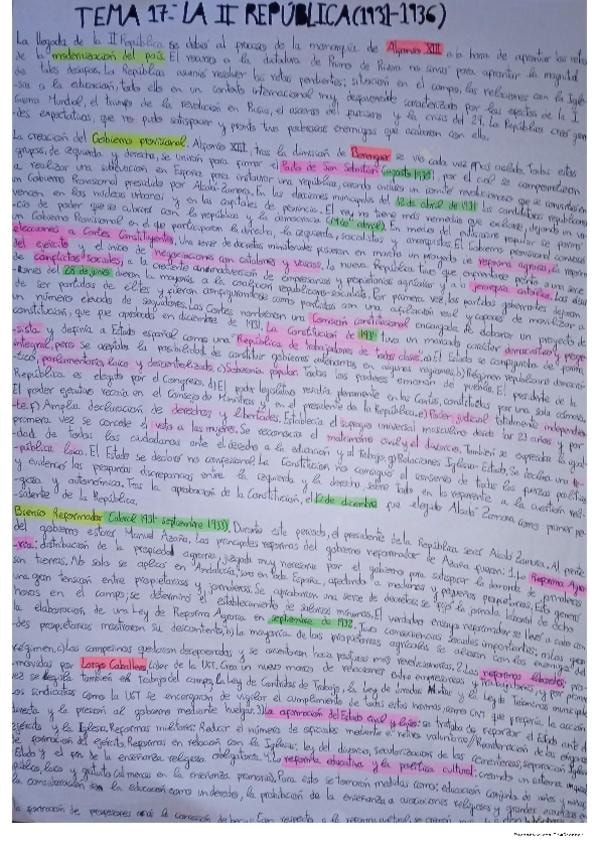 TEMA 17.- LA II REPÚBLICA (1931-1936)
La llegada de la II República se debió al proceso de la monarquía de Alfonso XIII a la hora de afrontar los retos
de la modernización del país. El recurso a la dictadura de Primo de Rivera no sirvió para afrontar la magnitud
de tales desafíos. La República asumió resolver los retos pendientes; situación en el campo, las relaciones con la Igle-
-sia, la educación, todo ello en un contexto internacional muy desfavorable caracterizado por los efectos de la I
Guerra Mundial, el triunfo de la revolución en Rusia, el ascenso del fascismo y la crisis del 29. La República creó gran-
-des expectativas, que no pudo satisfacer y pronto tuvo poderosos enemigos que acabaron con ella.
La creación del Gobierno provisional. Alfonso XIII, tras la dimisión de Berenguer se vio cada vez más aislado. Todos estos
grupos, de izquierda y derecha, se unieron para firmar el Pacto de San Sebastián (agosto 1930) por el cual se comprometieron
a realizar una sublevación en España para instaurar una república, creando incluso un comité revolucionario que se convertiría en
un Gobierno Provisional presidido por Alcalá-Zamora. En las elecciones municipales del 12 de abril de 1931 los candidatos republicanos
vencen en los núcleos urbanos y en las capitales de provincia. El rey no tiene más remedio que exiliarse, dejando un va-
-cío de poder que se cubrirá con la república y la democracia (14 de abril). En medio del entusiasmo popular se formó
un Gobierno Provisional en el que participaron la derecha, la izquierda, socialistas y
elecciones a Cortes Constituyentes. Una serie de decretos ministeriales pusieron en marcha un proyecto de reforma agraria, la reforma
del ejército y el inicio de negociaciones con catalanes y vascos. La nueva República tuvo que enfrentarse pronto a una serie
de conflictos sociales, a la creciente animadversión de empresarios y propietarios agrícolas y a la jerarquía católica. Las elec-
-ciones del 28 de junio dieron la mayoría a la coalición republicano-socialista. Por primera vez, los partidos gobernantes dejaron
de ser partidos de élites y fueron configurándose como partidos con una afiliación real y capaces de movilizar a
un número elevado de seguidores. Las Cortes nombraron una Comisión constitucional encargada de elaborar un proyecto de
constitución, que fue aprobado en diciembre de 1931. La Constitución de 1931 tuvo un marcado carácter democrático y progre-
-sista y definía a Estado español como una "República de trabajadores de todas clases". a) El Estado se configuraba de forma
integral, pero se aceptaba la posibilidad de constituir gobiernos autónomos en algunas regiones. b) Régimen republicano democrá-
-tico, parlamentario, laico y descentralizado. c) Soberanía popular. Todos los poderes emanan del pueblo. El presidente de la
República es elegido por el Congreso. d) El poder legislativo residía plenamente en las Cortes, constituidas por una sola cámara.
El poder ejecutivo recaía en el Consejo de Ministros y en el presidente de la República. e) Poder judicial totalmente independien-
-te. f) Amplia declaración de derechos y libertades. Establecía el sufragio universal masculino desde los 23 años y por
primera vez se concede el voto a las mujeres. Se reconocía el matrimonio civil y el divorcio. También se expresaba la igual-
-dad de todos los ciudadanos ante el derecho a la educación y al trabajo. g) Relaciones Iglesia-Estado. Se declara una re-
-pública laica. El Estado se declaró no confesional. La Constitución no consiguió el consenso de todas las fuerzas políticas
y evidenció las pequeñas discrepancias entre la izquierda y la derecha, sobre todo en lo referente a la cuestión reli-
-giosa y autonómica. Tras la aprobación de la Constitución, el 10 de diciembre fue elegido Alcalá-Zamora como primer pre-
-sidente de la República.
Bienio Reformador (abril 1931- septiembre 1933). Durante este periodo, el presidente de la República será Alcalá-Zamora. Al frente
del gobierno estará Manuel Azaña. Las principales reformas del gobierno reformador de Azaña fueron: 1. La Reforma Agra-
-ria: distribución de la propiedad agraria, juzgada muy necesaria por el gobierno para satisfacer la demanda de jornaleros
sin tierras. No solo se aplica en Andalucía, sino en toda España, afectando a medianos y pequeños propietarios. Esto generó
una gran tensión entre propietarios y jornaleros. Se aprobaron una serie de decretos: se fijó la jornada laboral de ocho
horas en el campo; se determinó el establecimiento de salarios mínimos. El verdadero ensayo reformador se llevó a cabo con
la elaboración de una Ley de Reforma Agraria en septiembre de 1932. Tuvo consecuencias sociales importantes: a) los gran-
-des propietarios mostraron su descontento, b) la mayoría de los propietarios agrícolas se aliaron con los enemigos del
régimen, c) los campesinos quedaron decepcionados y se orientaron hacia posturas más revolucionarias. 2. Las reformas laborales: pro-
-movidas por Largo Caballero, líder de la UGT. Crea un nuevo marco de relaciones entre empresarios y trabajadores y por primera
vez se legisla también en Trabajo del campo. La Ley de Contratos de Trabajo, la Ley de Jurados Mixtos y la Ley de Términos municipales
los sindicatos como la UGT se encargarán de vigilar el cumplimiento de todas estas normas, que prefería la acción
directa y la presión al gobierno mediante huelgas. 3) La afirmación del Estado civil y laico: se trataba de reforzar el Estado ante el
ejército y la Iglesia. Reformas militares: Reducir el número de oficiales mediante el retiro voluntario//Reordenación de los
de formación del ejército. Reformas en relación con la Iglesia: ley del divorcio, secularización de los cementerios, separación Iglesia-
Estado y el fin de la enseñanza religiosa obligatoria. 4. La reforma educativa y la política cultural: creando un sistema
público, laico y gratuito (al menos en la enseñanza primaria). Para esto se tomarán medidas como: educación conjunta de niños y niñas,
la consideración de la educación como un derecho, la prohibición de la enseñanza a asociaciones religiosas y grandes
la formación de profesores